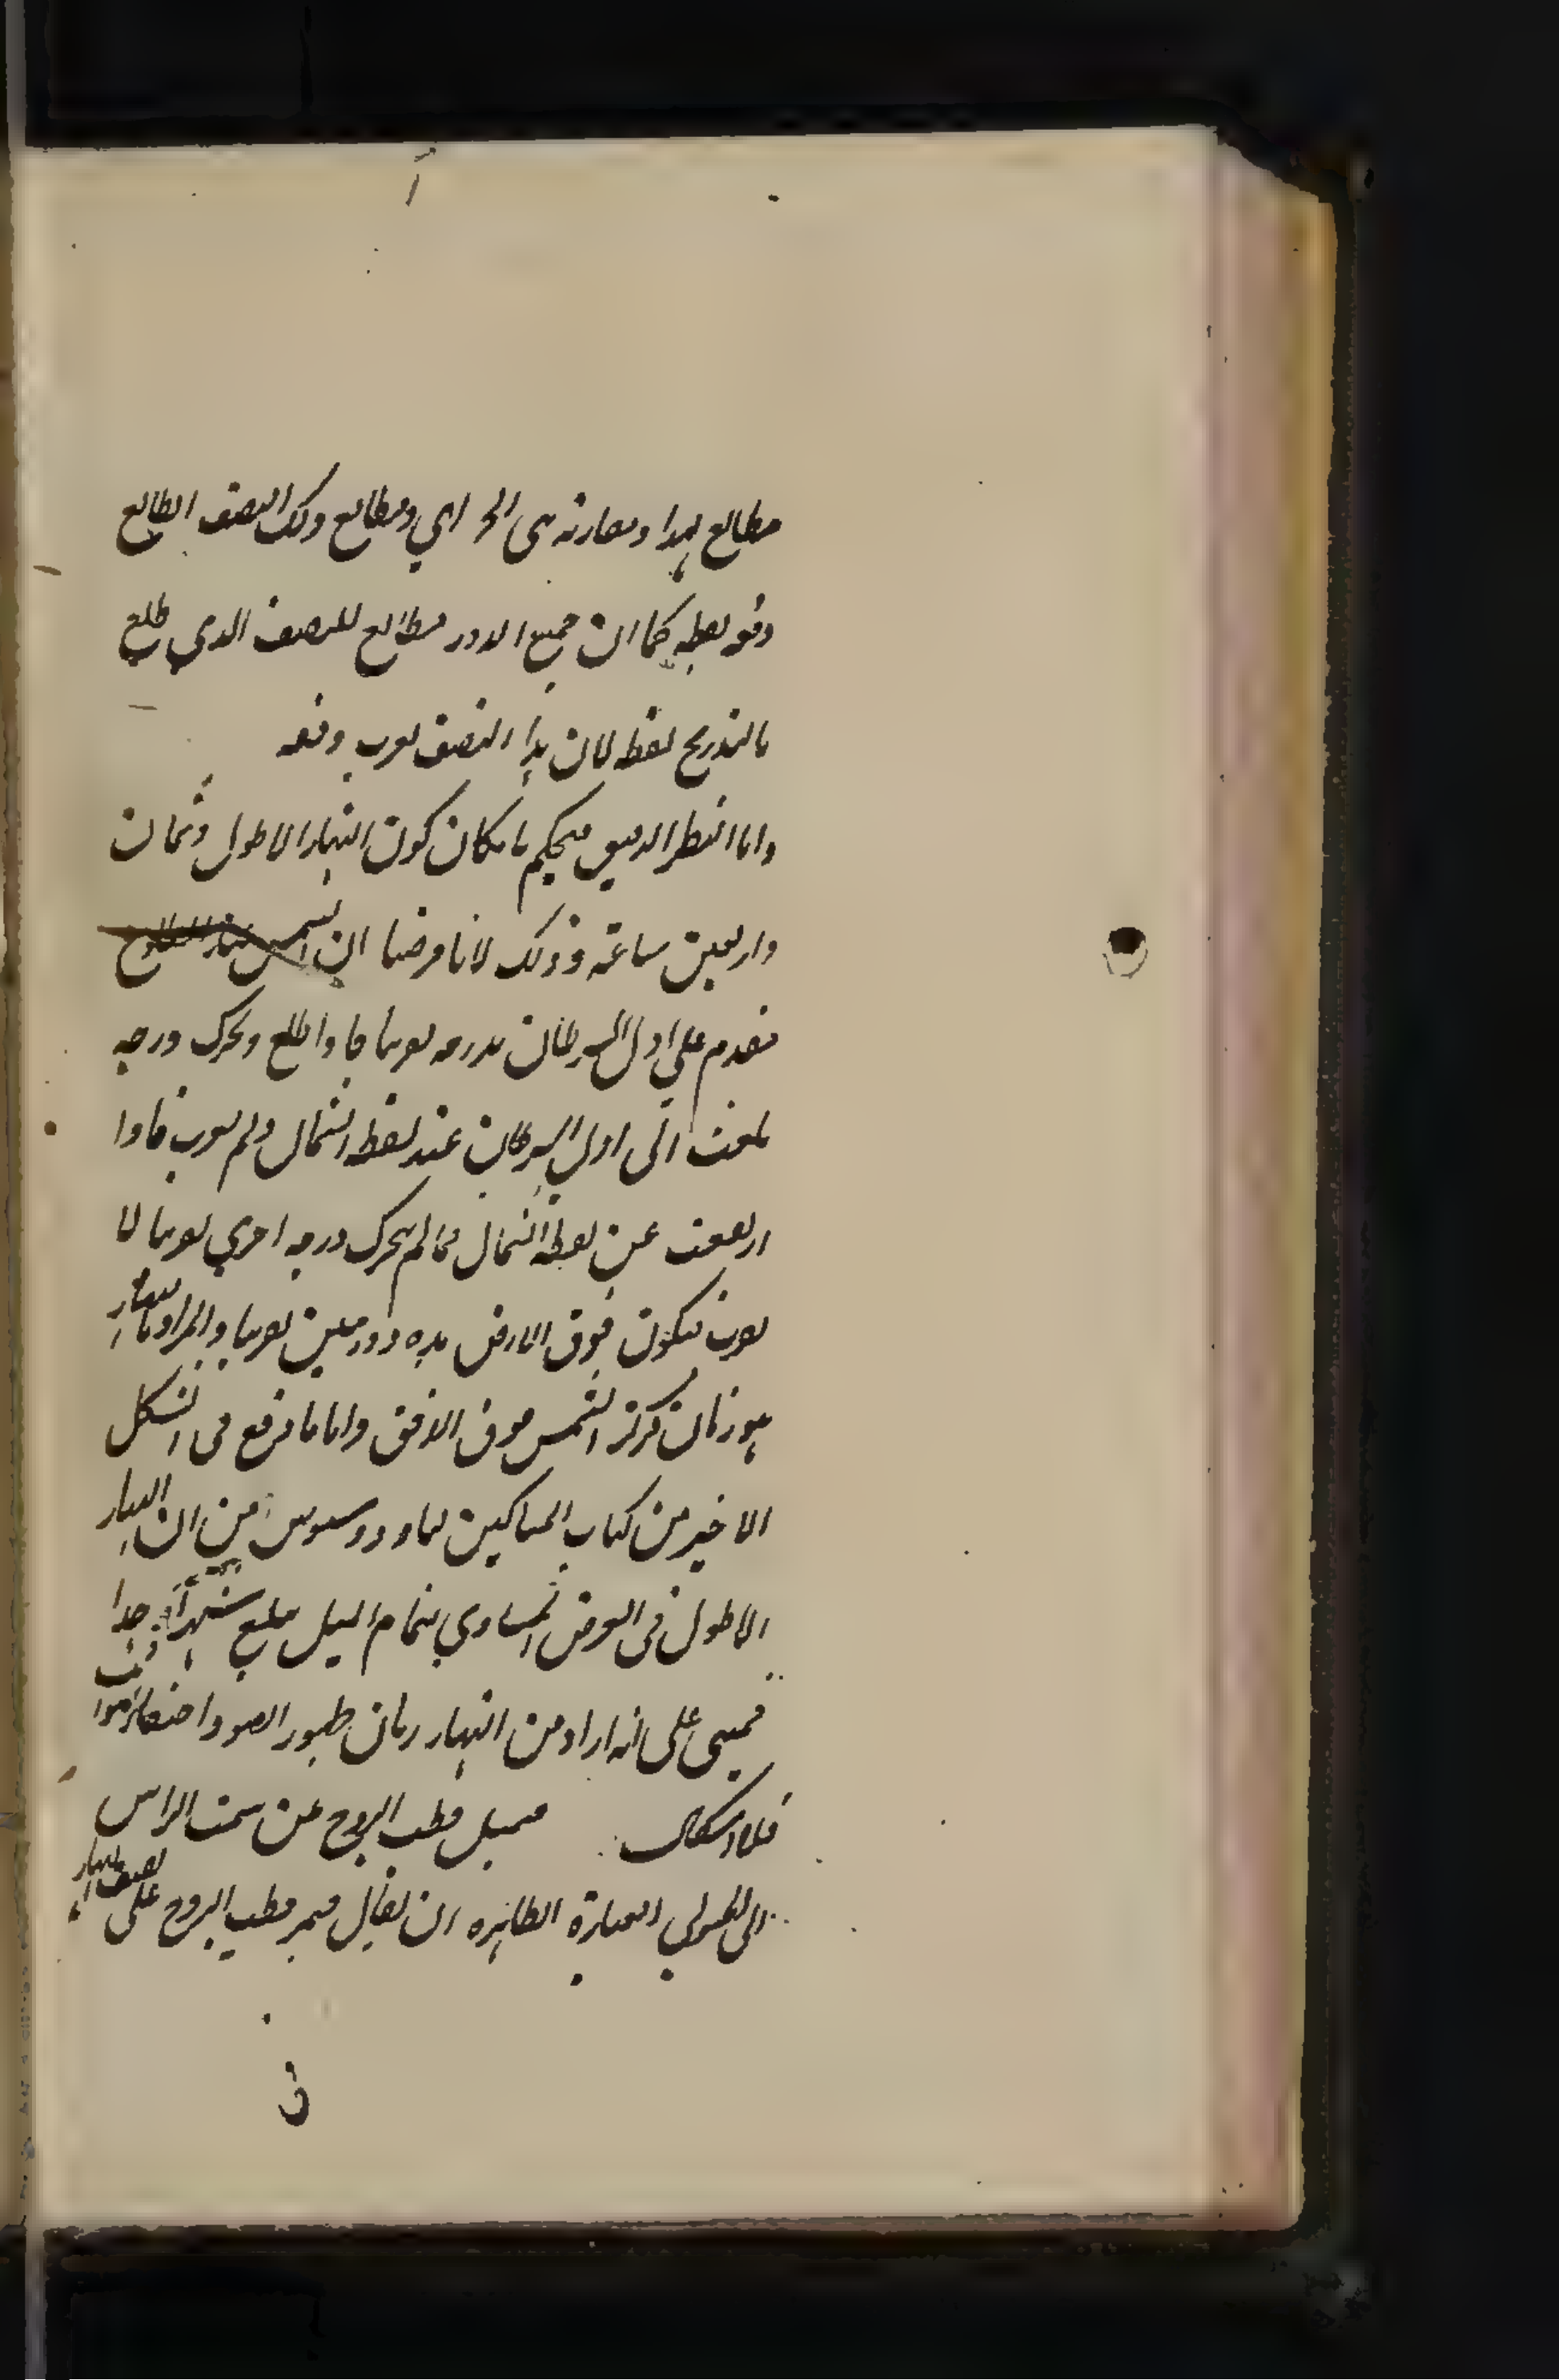 مطالع لهذا ومغاربه هي الجزء اي ومطالع ذلك النصف الطالع
دفعة نقطة كما ان جميع الدور مطالع للنصف الذي طلع
بالتدريج نقطة لان هذا النصف يغرب دفعة
واما النظر الدقيق فيحكم بامكان كون النهار الاطول ثمان
واربعين ساعة وذلك لانا فرضنا ان الشمس
متقدم على اول السرطان بدرجة تقريبا فاذا طلع وتحرك درجة
بلغت الى اول السرطان عند نقطة الشمال ولم يغرب فاذا
ارتفعت عن نقطة الشمال فما لم يتحرك درجة اخرى تقريبا لا
يغرب فيكون فوق الارض مدة دورتين تقريبا والمراد بالنهار
هو زمان مركز الشمس فوق الافق واما ما وقع في الشكل
الاخير من كتاب المساكين لثاودوسيوس من ان النهار
الاطول في العرض المساوي لتمام الميل يبلغ شهرا جدا
فمبنى على انه اراد من النهار زمان ظهور الضوء واختفاء الثوابت
فلا اشكال فميل قطب البروج عن سمت الراس
الى العبارة الظاهرة ان يقال فيمر قطب البروج على نصف النهار
ن